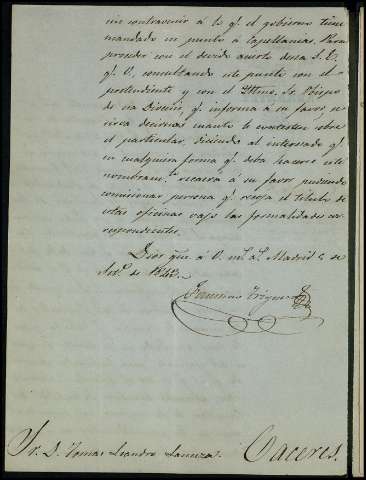 sin contravenir á lo q.e el gobierno tiene
mandado en punto á Capellanias. Para
proceder con el devido acierto desea S. E.
q.e V. consultando este punto con el
pretendiente y con el Yltmo. Sr. Obispo
de esa Diocesis q.e informa á su favor, se
sirva decirnos cuanto le contesten sobre
el particular, diciendo al interesado q.e
en cualquiera forma q.e deba hacerse este
nombram.to recaerá á su favor pudiendo
comisionar persona q.e recoja el titulo de
estas oficinas bajo las formalidades cor-
respondientes.
Dios gue á V. m.s a.s Madrid 4 de
de 1842.
Trigueros
Sr. D. Tomas Leandro Caceres.